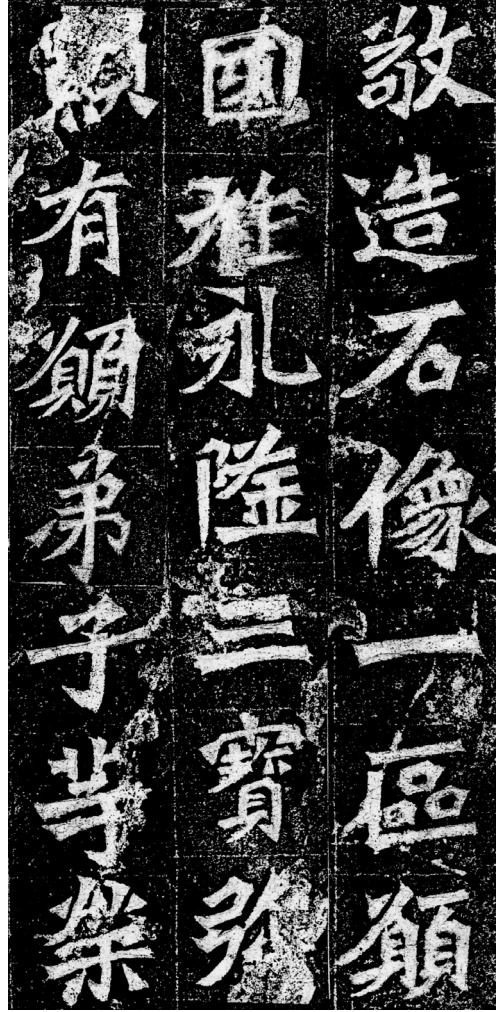 敬造石像一區願
國祚永隆三寶弥
顯有願弟子等榮